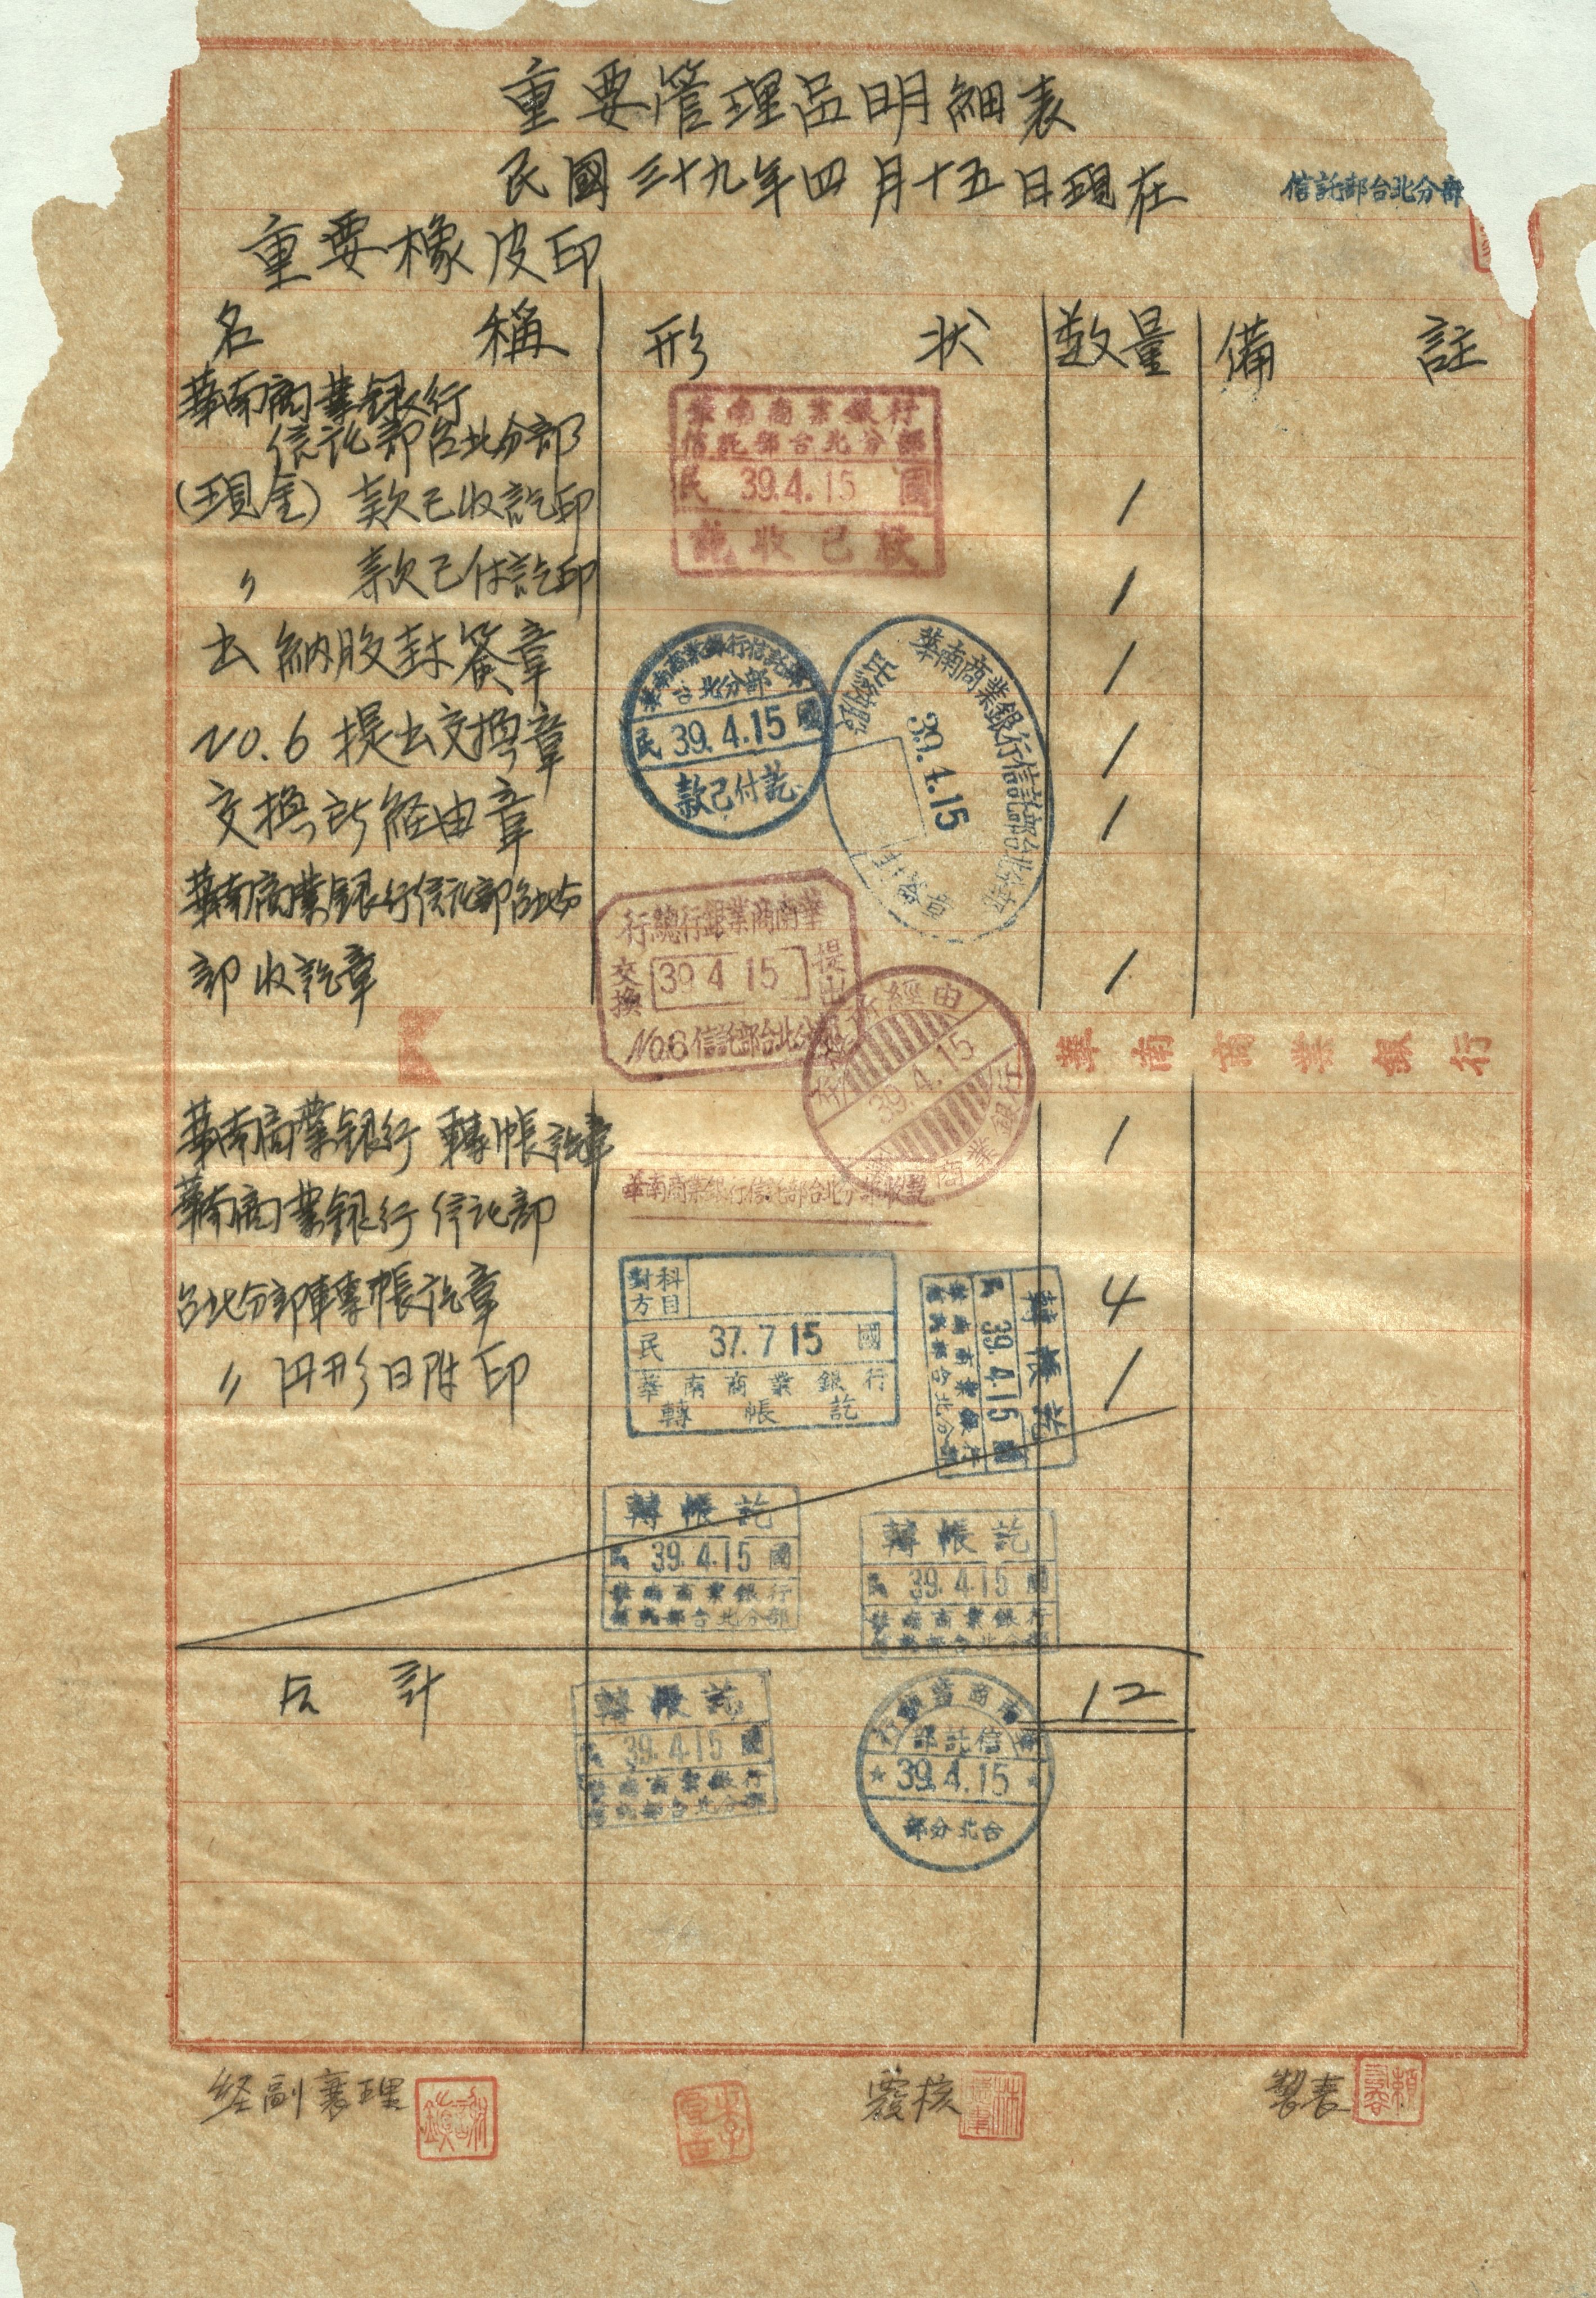 重要管理品明細表
民國三十九年四月十五日現在
信託部台北分部
重要橡皮印
名稱 形狀 数量 備註
華南商業銀行
信託部台北分部
(現金) 款已收訖印 1
〃 款已付訖印 1
出納股封簽章 1
NO.6 提出交換章 1
交換所経由章 1
華南商業銀行信託部台北分
部收訖章 1
華南商業銀行 轉帳訖章 1
華南商業銀行信託部
台北分部轉帳訖章 4
〃 円形日附印 1
合計 12
華南商業銀行
信託部台北分部
民 39.4.15 國
訖收已款
華南商業銀行信託部
台北分部
民 39.4.15 國
款已付訖
華南商業銀行信託部台北分部
出納股
39.4.15
行總行銀業商南華
交換 39 4 15 提出
No.6 信託部台北分部
所經由
39.4.15
華南商業銀行
華南商業銀行信託部台北分部收訖
華南商業銀行
對方科目
民 37.7 15 國
華南商業銀行
轉帳訖
轉帳訖
民 39.4.15 國
華南商業銀行
信託部台北分部
轉帳訖
民 39.4.15 國
華南商業銀行
信託部台北分部
轉帳訖
民 39.4.15 國
華南商業銀行
信託部台北分部
轉帳訖
民 39.4.15 國
華南商業銀行
信託部台北分部
行銀業商南華
部託信
39.4.15
部分北台
経副襄理 覆核 製表